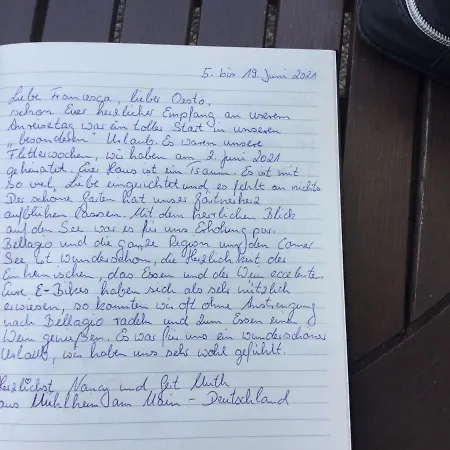 5. bis 19. Juni 2021
Liebe Francesca, lieber Oreto,
schon Euer herzlicher Empfang an unserem
Anreisetag war ein toller Start in unseren
„besonderen" Urlaub. Es waren unsere
Flitterwochen, wir haben am 2. Juni 2021
geheiratet. Euer Haus ist ein Traum. Es ist mit
so viel Liebe eingerichtet und es fehlt an nichts
Der schöne Garten hat unser Gärtnerherz
aufblühen lassen. Mit dem herrlichen Blick
auf den See war es für uns Erholung pur.
Bellagio und die ganze Region um den Comer
See ist wunderschön, die Herzlichkeit der
Einheimischen, das Essen und der Wein
Eure E-Bikes haben sich als sehr nützlich
erwiesen, so konnten wir oft ohne Anstrengung
nach Bellagio radeln und zum Essen einen
Wein genießen. Es war für uns ein wunderschöner
Urlaub, wir haben uns sehr wohl gefühlt.
Herzlichst, Nancy und Muth
aus Mühlheim am Main - Deutschland